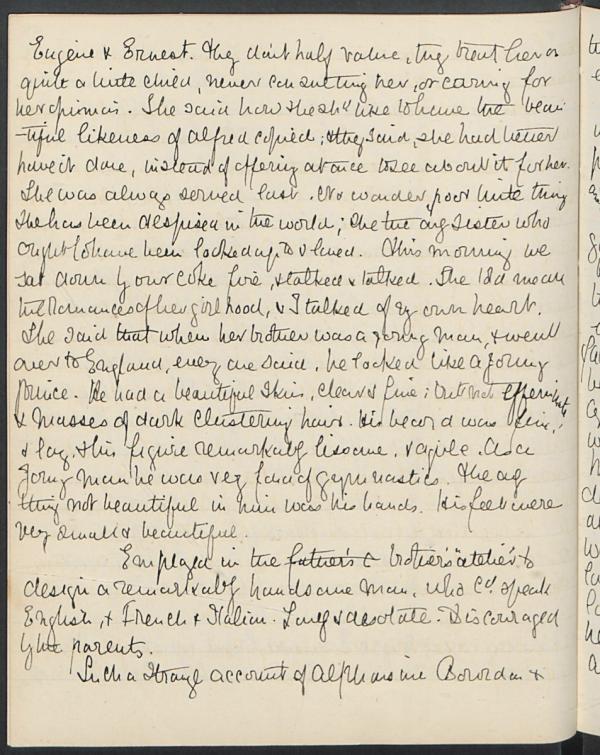 Eugène & Ernest. They don't half value, they treat her as
quite a little child, never consulting her, or caring for
her opinions. She said how she shd like to have the beau
-tiful likeness of Alfred copied; & they said, she had better
have it done, instead of offering at once to see about it for her.
She was always served last. No wonder, poor little thing
she has been despised in the world; she the only sister who
ought to have been looked up to & loved. This morning we
sat down by our coke fire, & talked & talked. She told me all
the Romances of her girlhood, & I talked of my own heart.
She said that when her brother was a young man, & went
over to England, every one said, he looked like a young
prince. He had a beautiful skin, clear & fine; but not effeminate
& masses of dark clustering hair. His beard was fine,
& long, & his figure remarkably lissome, & agile. As a
young man he was very fond of gymnastics. The only
thing not beautiful in him was his hands. His feet were
very small & beautiful.
Employed in the father's brother's "atelier" to
design a remarkably handsome man, who cd speak
English, & French & Italian. Lonely & desolate. Discouraged
by his parents.
Such a strange account of Alphonsine Bourdon &